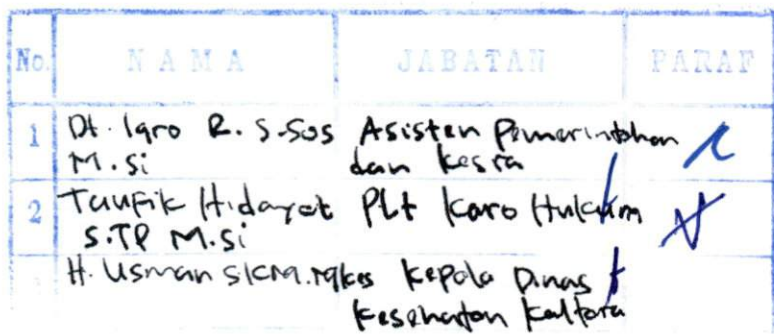 No. NAMA JABATAN PARAF
1 Dt. Iqro R. S.Sos Asisten Pemerintahan
M.Si dan kesra
2 Taufik Hidayat Plt Karo Hukum
S.TP M.Si
H. Usman SKM. Mkes Kepala Dinas
Kesehatan Kaltara